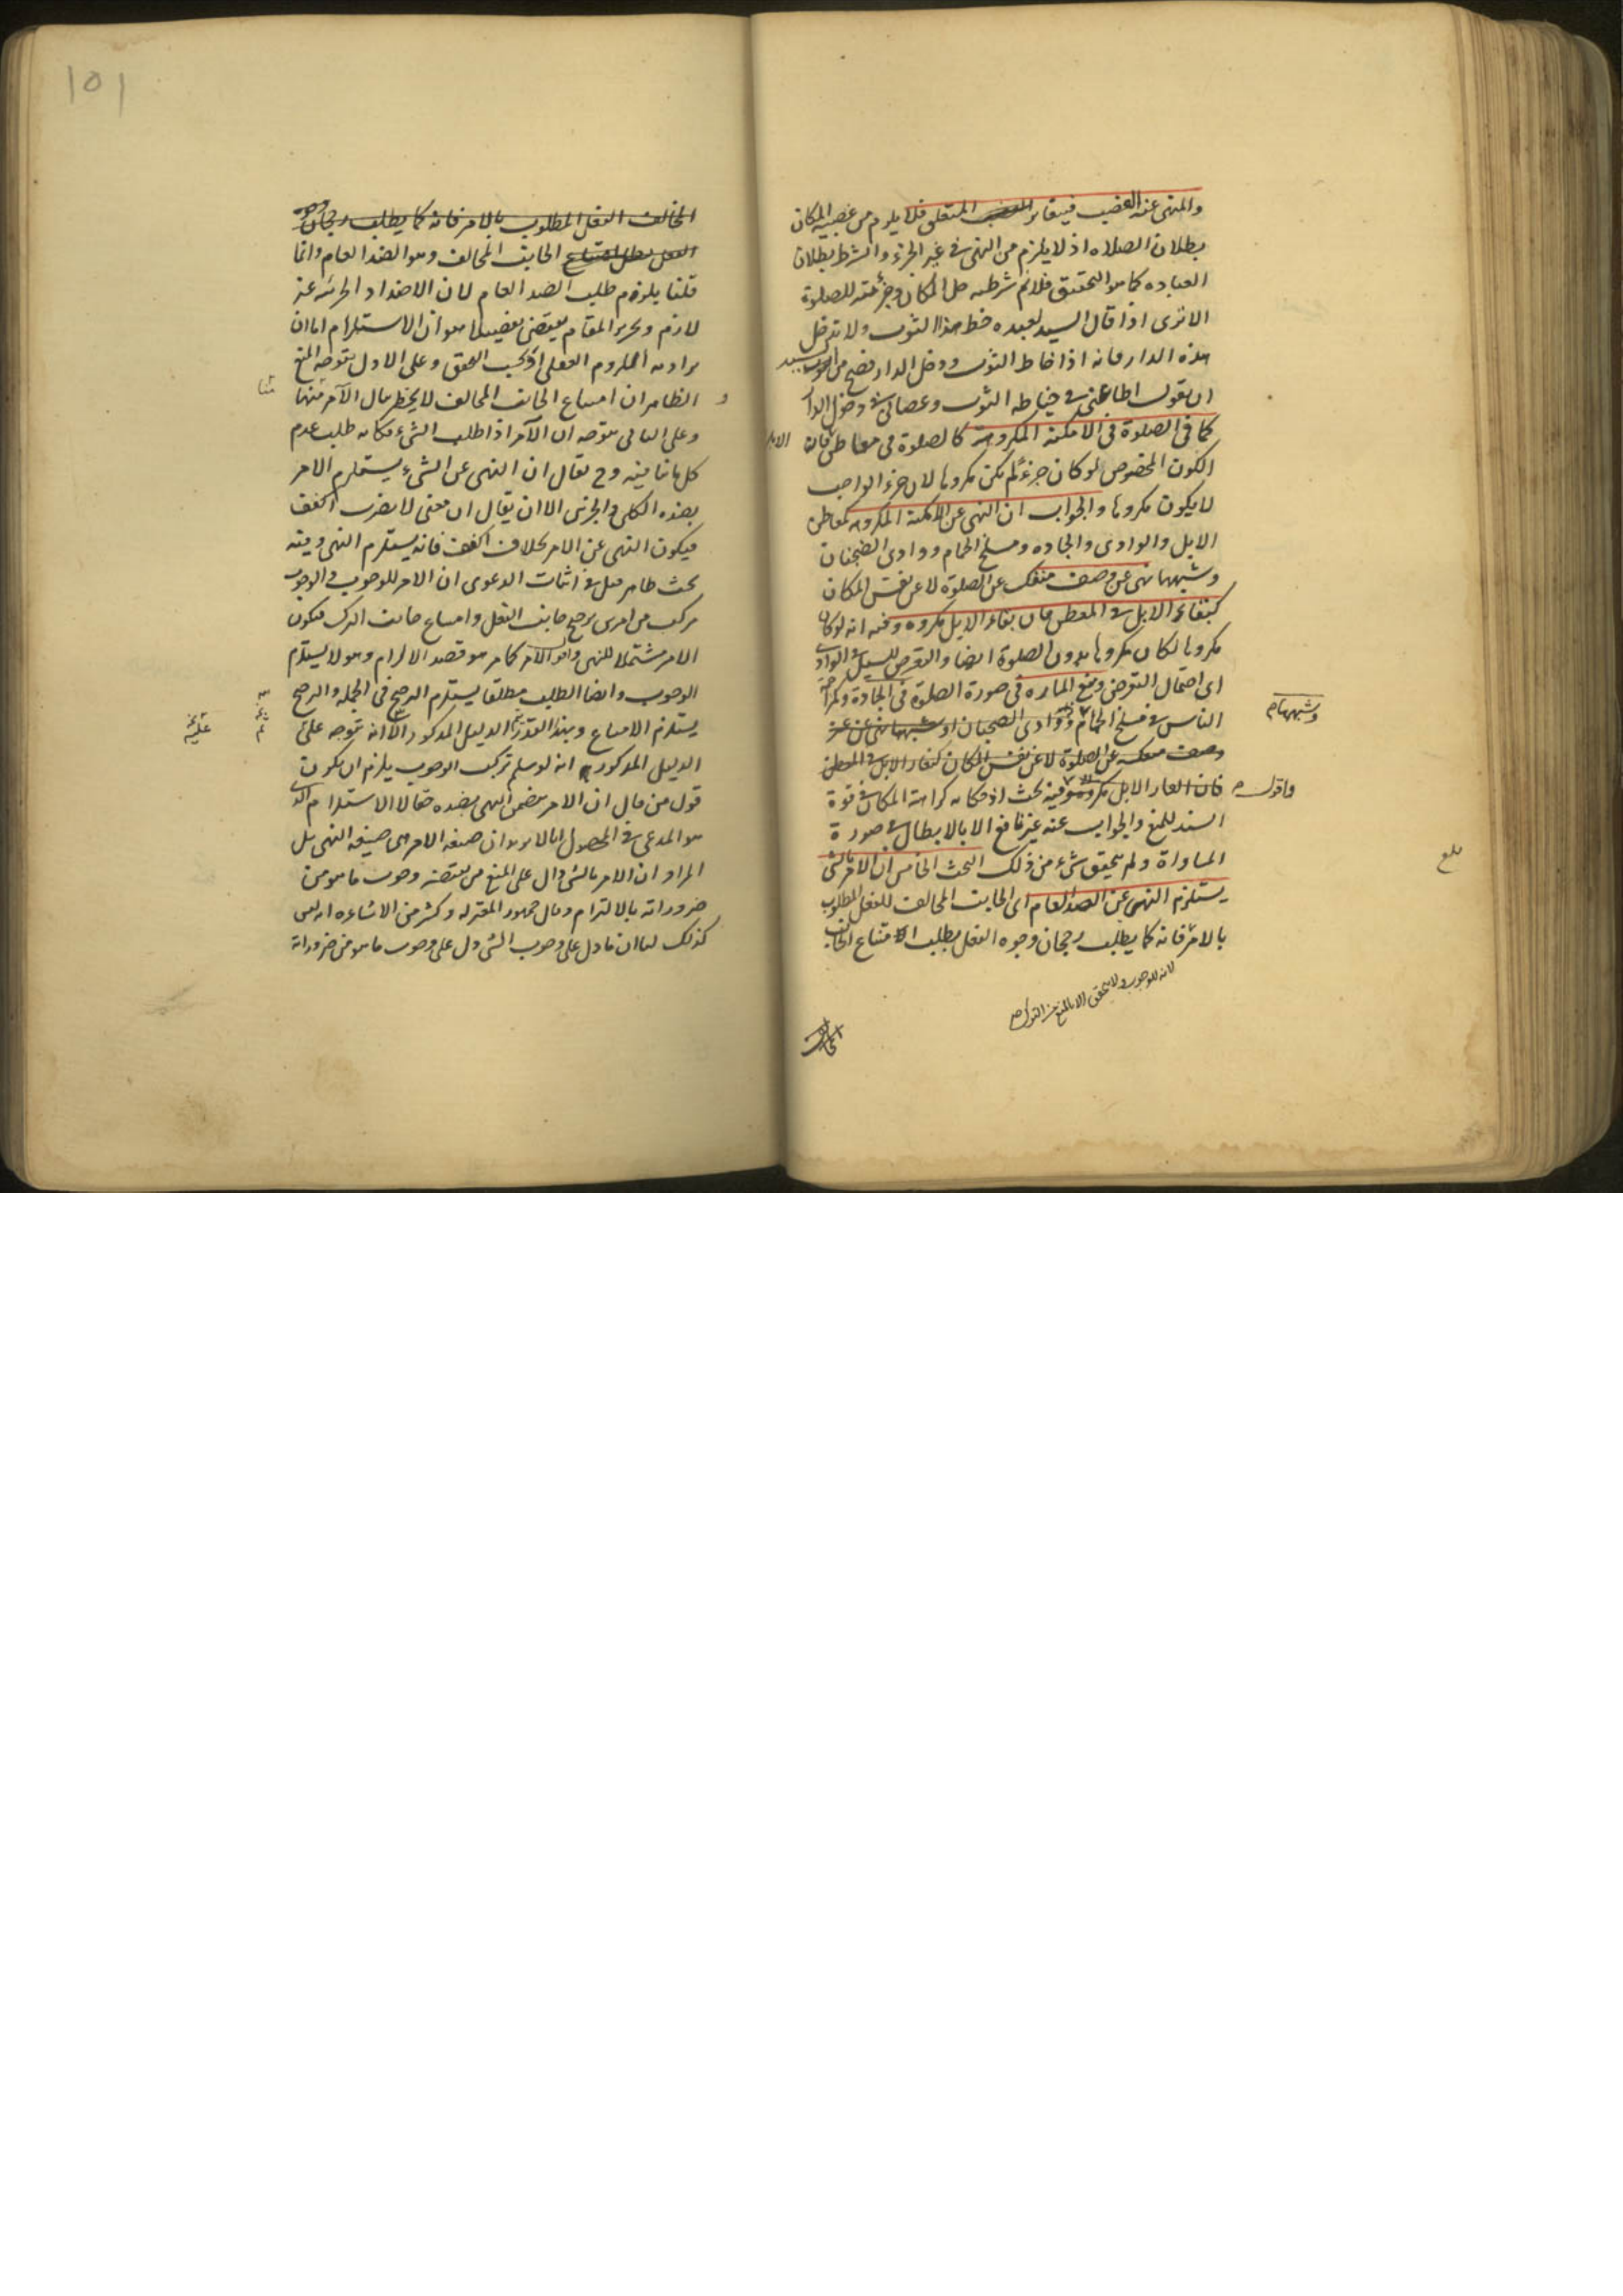 والمنهى عنه الغضب فيتغاير المتعلق فلا يلزم من غصبيه المكان
بطلان الصلاه اذ لا يلزم من النهى فى غير الجزء والشرط بطلان
العباده كما هو التحقيق فلانم شرطيه حل المكان وجزئيته للصلوة
الا ترى اذا قال السيد لعبده خط هذا الثوب ولا تدخل
هذه الدار فانه اذا خاط الثوب ودخل الدار فصح من السيد
ان يقول اطاعنى فى خياطه الثوب وعصانى فى دخول الدار
كما فى الصلوة فى الامكنه المكروهه كالصلوة فى معاطن الابل فان
الكون المخصوص لو كان جزء لم يكن مكروها لان جزء الواجب
لا يكون مكروها والجواب ان النهى عن الامكنة المكروهه كمعاطن
الابل والوادى والجاده ومسلخ الحمام ووادى الضجنان
وشبهها نهى عن وصف منفك عن الصلوة لا عن نفس المكان
كنفار الابل فى المعطن فان نفار الابل مكروه وفيه انه لو كان
مكروها لكان مكروها بدون الصلوة ايضا والتعرض للسيل فى الوادى
اى احتمال التعرض ومنع الماره فى صورة الصلوة فى الجادة و
الناس فى مسلخ الحمام ووادى الضجنان او شبهها نهى عن
وصف منفك عن الصلوة لا عن نفس المكان كنفار الابل فى المعطن
فان نفار الابل مكروه وفيه بحث اذ حكايه كراهة المكان فى قوة
السند للمنع والجواب عنه غير نافع الا بالابطال فى صورة
المساواة ولم يتحقق شىء من ذلك البحث الخامس ان الامر بالشى
يستلزم النهى عن الضد العام اى الجانب المخالف للفعل المطلوب
بالامر فانه كما يطلب رجحان وجوه الفعل يطلب امتناع الجانب
لانه للوجوب ولا يتحقق الا بالمنع من الترك
وشبهها
فاقول
بلغ
المخالف الفعل المطلوب بالامر فانه كما يطلب رجحان وجوه
الفعل يطلب امتناع الجانب المخالف وهو الضد العام وانما
قلنا يلزم طلب الضد العام لان الاضداد الجزئيه غير
لازم وتحرير المقام يقتضى تفصيلا هو ان الاستلزام اما ان
يراد به اللزوم العقلى او بحسب التحقق وعلى الاول يتوجه المنع
اذ الظاهر ان امتناع الجانب المخالف لا يخطر ببال الآمر
وعلى الثانى يتوجه ان الآمر اذا طلب الشىء فكانه طلب عدم
كل ما ينافيه وح يقال ان النهى عن الشىء يستلزم الامر
بضده الكلى والجزئى الا ان يقال ان معنى لا تضرب اكفف
فيكون النهى عن الامر بخلاف اكفف فانه يستلزم النهى وفيه
بحث ظاهر قيل فى اثبات الدعوى ان الامر للوجوب والوجوب
مركب من امرين ترجح جانب الفعل وامتناع جانب الترك فيكون
الامر مشتملا للنهى والامر كما مر هو قصد الالزام وهو لا يستلزم
الوجوب وايضا الطلب مطلقا يستلزم الترجح فى الجمله والترجح
يستلزم الامتناع وبهذا القدر يتم الدليل المذكور الا انه يتوجه على
الدليل المذكور انه لو سلم تركب الوجوب يلزم ان يكون
قول من قال ان الامر يتضمن النهى بضده حقا لا الاستلزام الذى
هو المدعى فى المحصول انا لا نريد ان صيغه الامر هى صيغه النهى بل
المراد ان الامر بالشى دال على المنع من نقيضه وجوب ما هو من
ضروراته بالالتزام وقال جمهور المعتزله وكثير من الاشاعره انه ليس
كذلك لنا ان ما دل على وجوب الشى دل على وجوب ما هو من ضروراته
عليه
١٥١